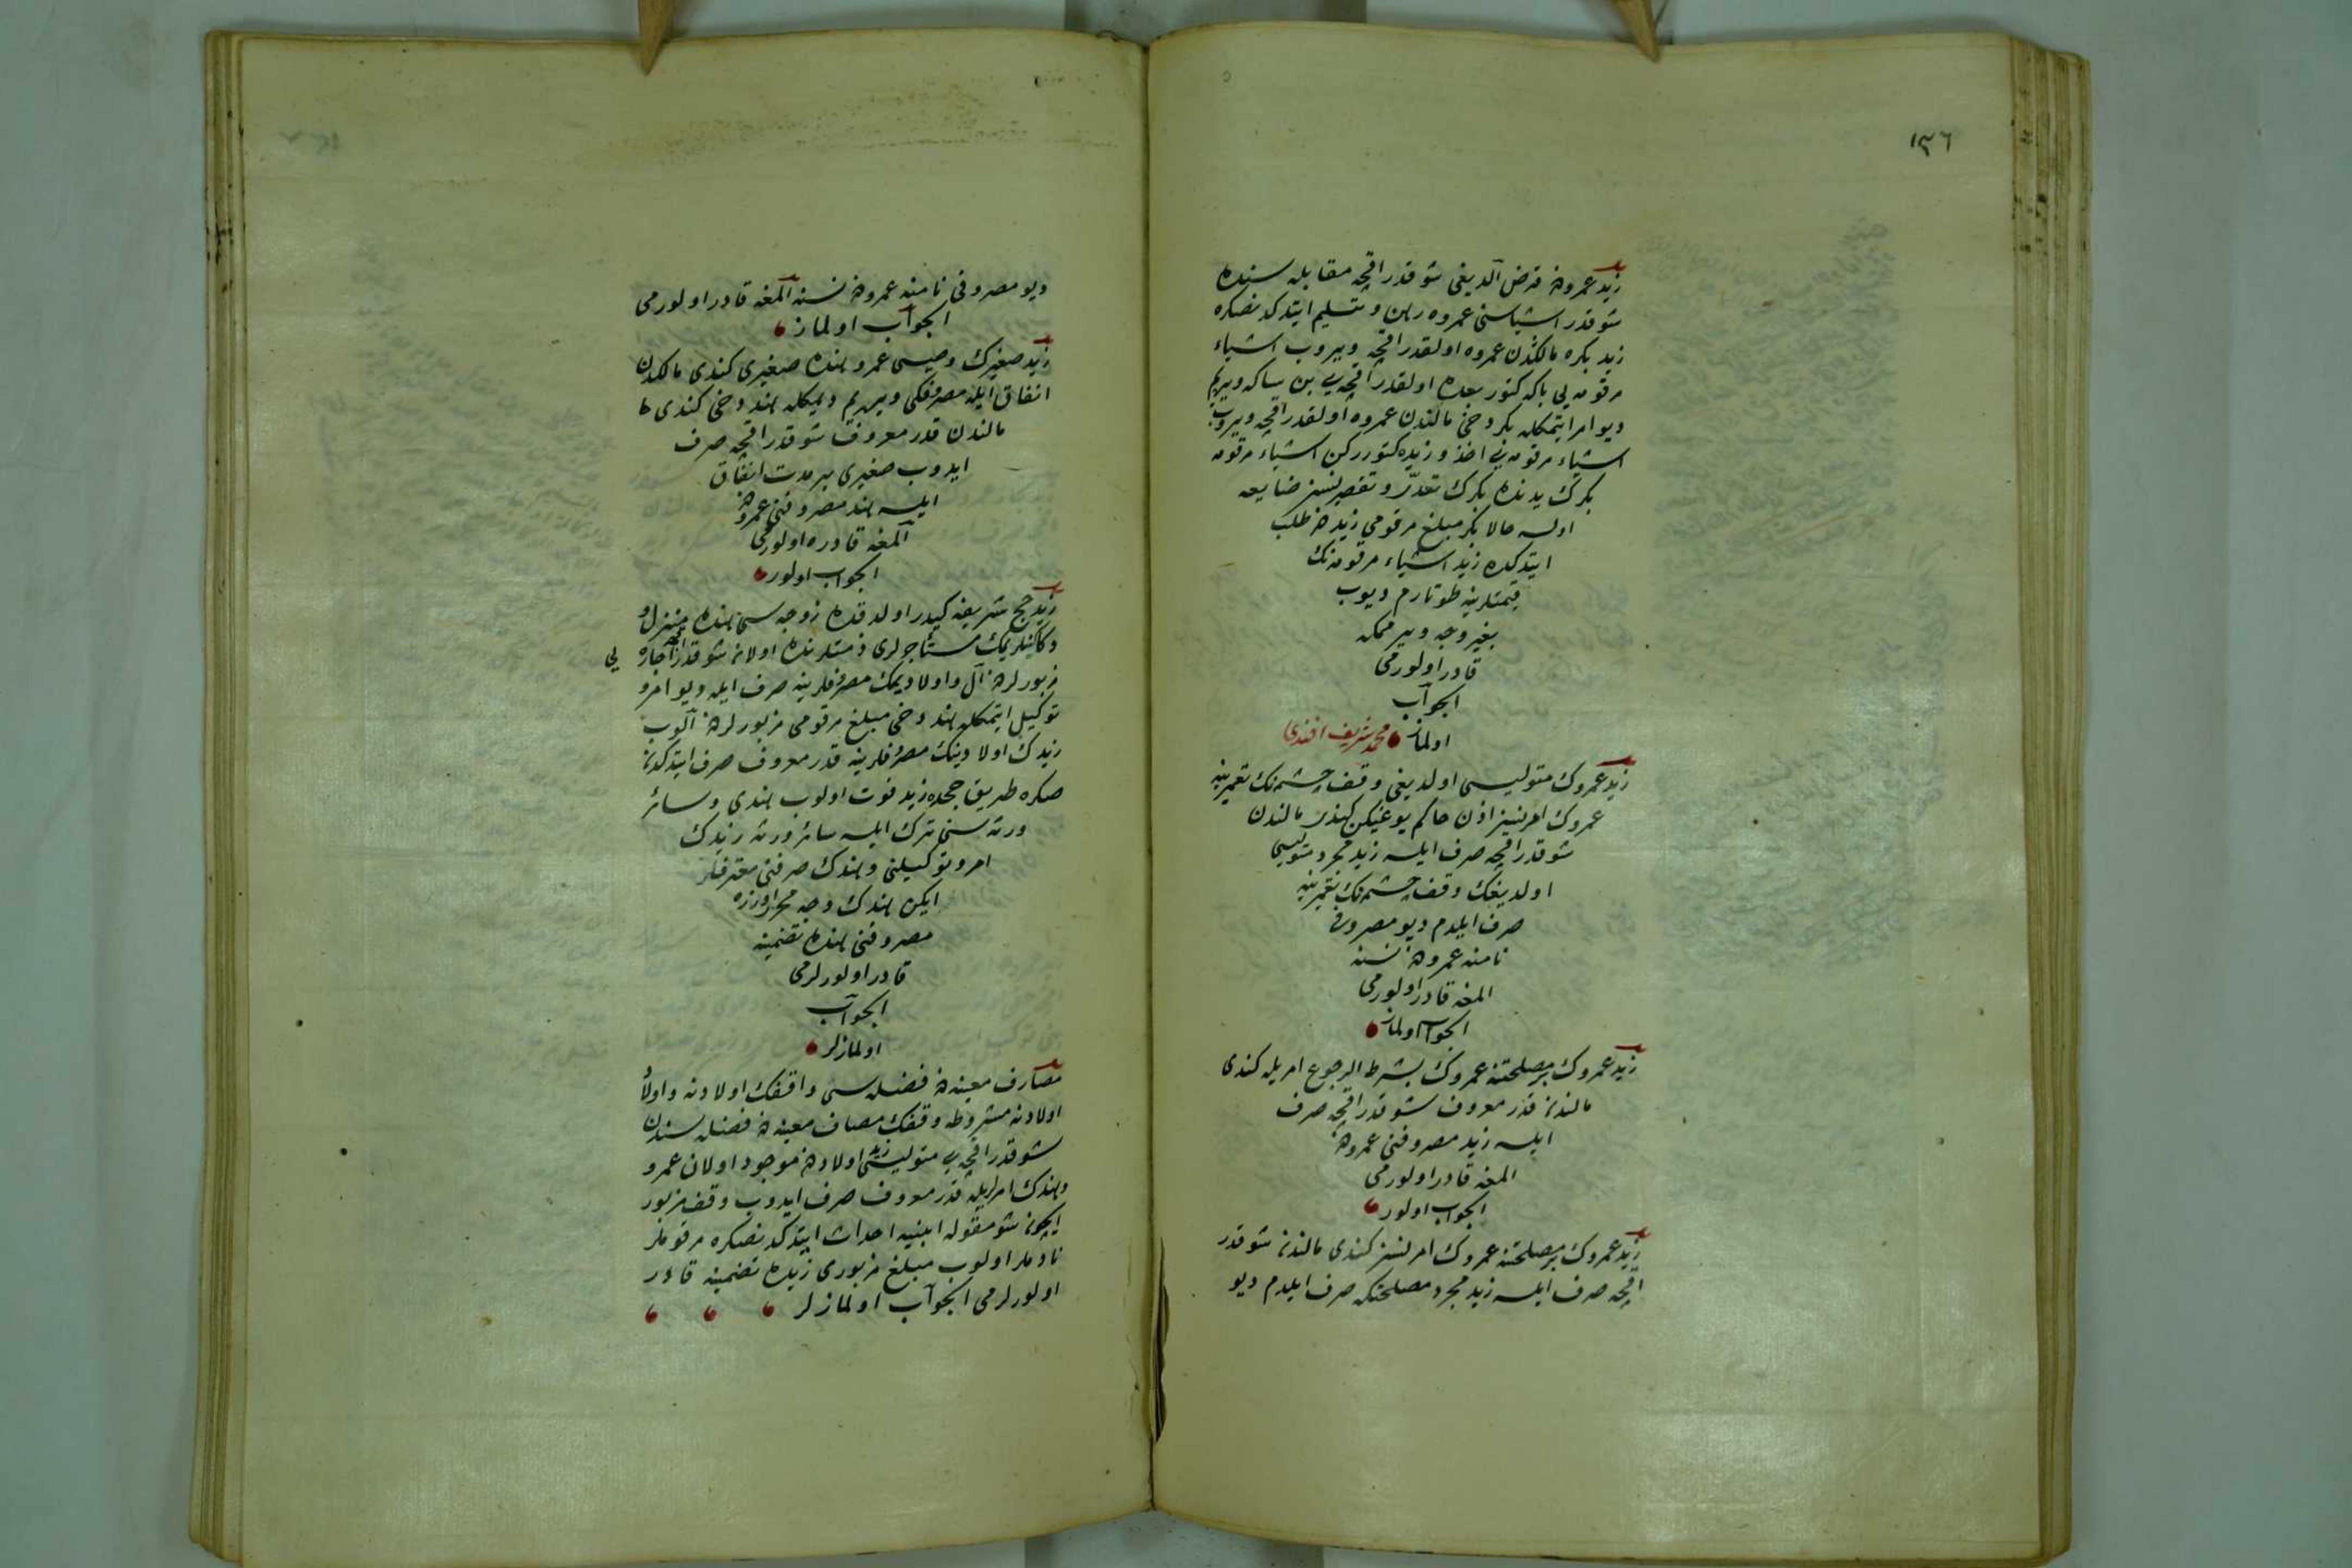 ١٣٦
زيد عمرودن قرض آلديغى شو قدر اقچه مقابله سنده
شو قدر اشياسنى عمروه رهن و تسليم ايتدكدنصكره
زيد بكره مالكدن عمروه اولقدر اقچه ويروب اشياء
مرقومه يى باكه كتور بعده اولقدر اقچه يى بن ساكه ويريم
ديو امر ايتمكله بكر دخى مالندن عمروه اولقدر اقچه ويروب
اشياء مرقومه يى اخذ و زيده كتورركن اشياء مرقومه
بكرك يدنده بكرك تعدّى و تقصيرنسز ضايعه
اولسه حالا بكر مبلغ مرقومى زيددن طلب
ايتدكده زيد اشياء مرقومه نك
قيمتلرينه طوتارم ديوب
بغير وجه ويرمكه
قادر اولورمى
الجواب
اولماز محمد شريف افندى
زيد عمروك متوليسى اولديغى وقف چشمه نك تعميرينه
عمروك امرنسز اذن حاكم يوغيكن كندى مالندن
شو قدر اقچه صرف ايلسه زيد مجرد متوليسى
اولديغك وقف چشمه نك تعميرينه
صرف ايلدم ديو مصروفى
نامنه عمرودن نسنه
المغه قادر اولورمى
الجواب اولماز
زيد عمروك بر مصلحتنه عمروك بشرط الرجوع امريله كندى
مالندن قدر معروف شو قدر اقچه صرف
ايلسه زيد مصروفنى عمرودن
المغه قادر اولورمى
الجواب اولور
زيد عمروك بر مصلحتنه عمروك امرنسز كندى مالندن شو قدر
اقچه صرف ايلسه زيد مجرد مصلحتكه صرف ايلدم ديو
ديو مصروفى نامنه عمرودن نسنه آلمغه قادر اولورمى
الجواب اولماز
زيد صغيرك وصيسى عمرو هنده صغيرى كندى مالكدن
انفاق ايله مصرفكى ويريم ديمكله هند دخى كندى
مالندن قدر معروف شو قدر اقچه صرف
ايدوب صغيرى بر مدت انفاق
ايلسه هند مصروفنى عمرودن
آلمغه قادره اولورمى
الجواب اولور
زيد حج شريفه كيدر اولدقده زوجه سى هنده منزل و
دكانلريمك مستأجرلرى ذمتلرنده اولان شو قدر اقچه اجاره يى
مزبورلردن آل و اولاديمك مصرفلرينه صرف ايله ديو امر و
توكيل ايتمكله هند دخى مبلغ مرقومى مزبورلردن آلوب
زيدك اولادينك مصرفلرينه قدر معروف صرف ايتدكدن
صكره طريق حجده زيد فوت اولوب هندى و سائر
ورثه سنى ترك ايلسه سائر ورثه زيدك
امر و توكيلنى و هندك صرفنى معترفلر
ايكن هندك وجه محرر اوزره
مصروفنى هنده تضمينه
قادر اولورلرمى
الجواب
اولمازلر
مصارف معينه دن فضله سى واقفك اولادنه و اولاد
اولادنه مشروطه وقفك مصارف معينه دن فضله سندن
شو قدر اقچه يى متوليسى زيد اولاددن موجود اولان عمرو
و هندك امرلريله قدر معروف صرف ايدوب وقف مزبور
ايچون شو مقوله ابنيه احداث ايتدكدنصكره مرقوملر
نادملر اولوب مبلغ مزبورى زيده تضمينه قادر
اولورلرمى الجواب اولمازلر